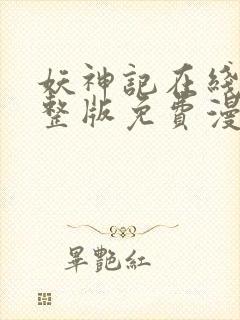 妖神記在綫
整版免費漫
畢艷紅